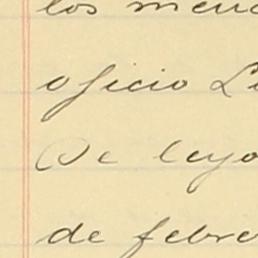 los men
oficio L
De leyo
de febre